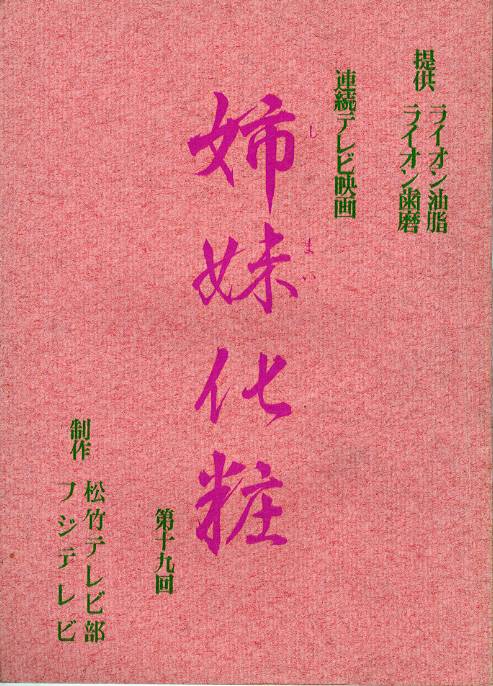 提供 ライオン油脂
ライオン歯磨
連続テレビ映画
姉妹化粧
しまい
第十九回
制作 松竹テレビ部
フジテレビ